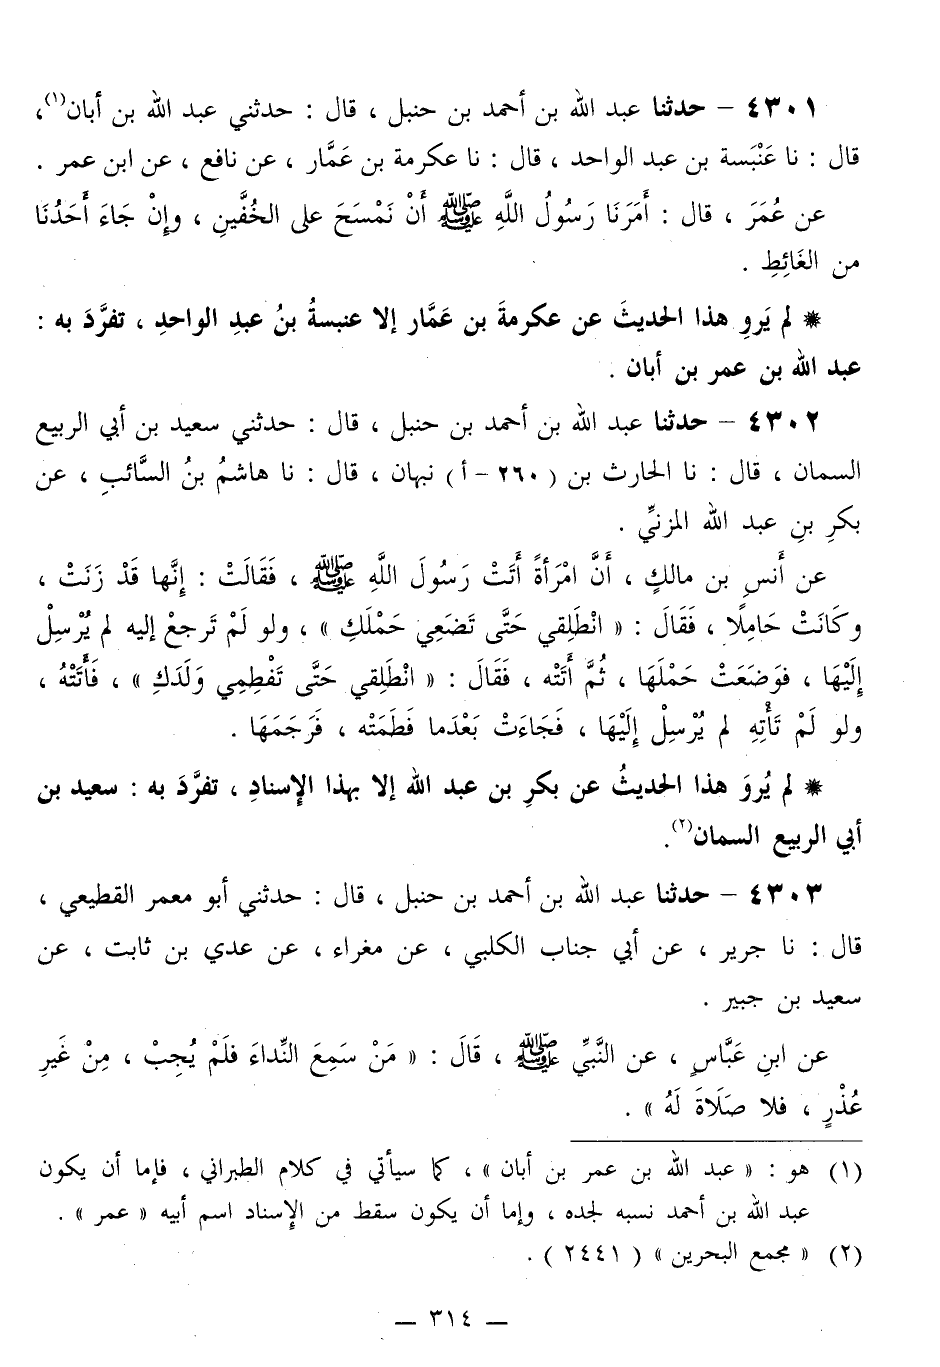 ٤٣٠١ – حدثنا عبد الله بن أحمد بن حنبل ، قال : حدثني عبد الله بن أبان(١)،
قال : نا عَنْبَسة بن عبد الواحد ، قال : نا عكرمة بن عَمَّار ، عن نافع ، عن ابن عمر .
عن عُمَرَ ، قال : أَمَرَنَا رَسُولُ اللَّهِ ﷺ أَنْ نَمْسَحَ على الخُفَّينِ ، وإِنْ جَاءَ أَحَدُنَا
من الغَائِطِ .
* لم يَروِ هذا الحديثَ عن عكرمةَ بن عَمَّار إلا عنبسةُ بنُ عبدِ الواحدِ ، تفرَّدَ به :
عبد الله بن عمر بن أبان .
٤٣٠٢ – حدثنا عبد الله بن أحمد بن حنبل ، قال : حدثني سعيد بن أبي الربيع
السمان ، قال : نا الحارث بن ( ٢٦٠ – أ ) نبهان ، قال : نا هاشمُ بنُ السَّائبِ ، عن
بكرِ بنِ عبد الله المزنيِّ .
عن أَنسِ بن مالكٍ ، أَنَّ امْرَأةً أَتَتْ رَسُولَ اللَّهِ ﷺ ، فَقَالَتْ : إِنَّها قَدْ زَنَتْ ،
وكَانَتْ حَامِلًا ، فَقَالَ : « انْطَلِقي حَتَّى تَضَعِي حَمْلَكِ » ، ولو لَمْ تَرجعْ إليه لم يُرْسِلْ
إِلَيْهَا ، فوَضَعَتْ حَمْلَهَا ، ثُمَّ أَتَتْه ، فَقَالَ : « انْطَلِقي حَتَّى تَفْطِمِي وَلَدَكِ » ، فَأَتَتْهُ ،
ولو لَمْ تَأْتِهِ لم يُرْسِلْ إِلَيْهَا ، فَجَاءَتْ بَعْدَما فَطَمَتْه ، فَرَجَمَهَا .
* لم يُروَ هذا الحديثُ عن بكرِ بن عبد الله إلا بهذا الإسنادِ ، تفرَّدَ به : سعيد بن
أبي الربيع السمان(٢).
٤٣٠٣ – حدثنا عبد الله بن أحمد بن حنبل ، قال : حدثني أبو معمر القطيعي ،
قال : نا جرير ، عن أبي جناب الكلبي ، عن مغراء ، عن عدي بن ثابت ، عن
سعيد بن جبير .
عن ابنِ عَبَّاسٍ ، عن النَّبيِّ ﷺ ، قَالَ : « مَنْ سَمِعَ النِّداءَ فلَمْ يُجِبْ ، مِنْ غَيرِ
عُذْرٍ ، فلا صَلَاةَ لَهُ » .
(١) هو : « عبد الله بن عمر بن أبان » ، كما سيأتي في كلام الطبراني ، فإما أن يكون
عبد الله بن أحمد نسبه لجده ، وإما أن يكون سقط من الإسناد اسم أبيه « عمر » .
(٢) « مجمع البحرين » ( ٢٤٤١ ) .
— ٣١٤ —